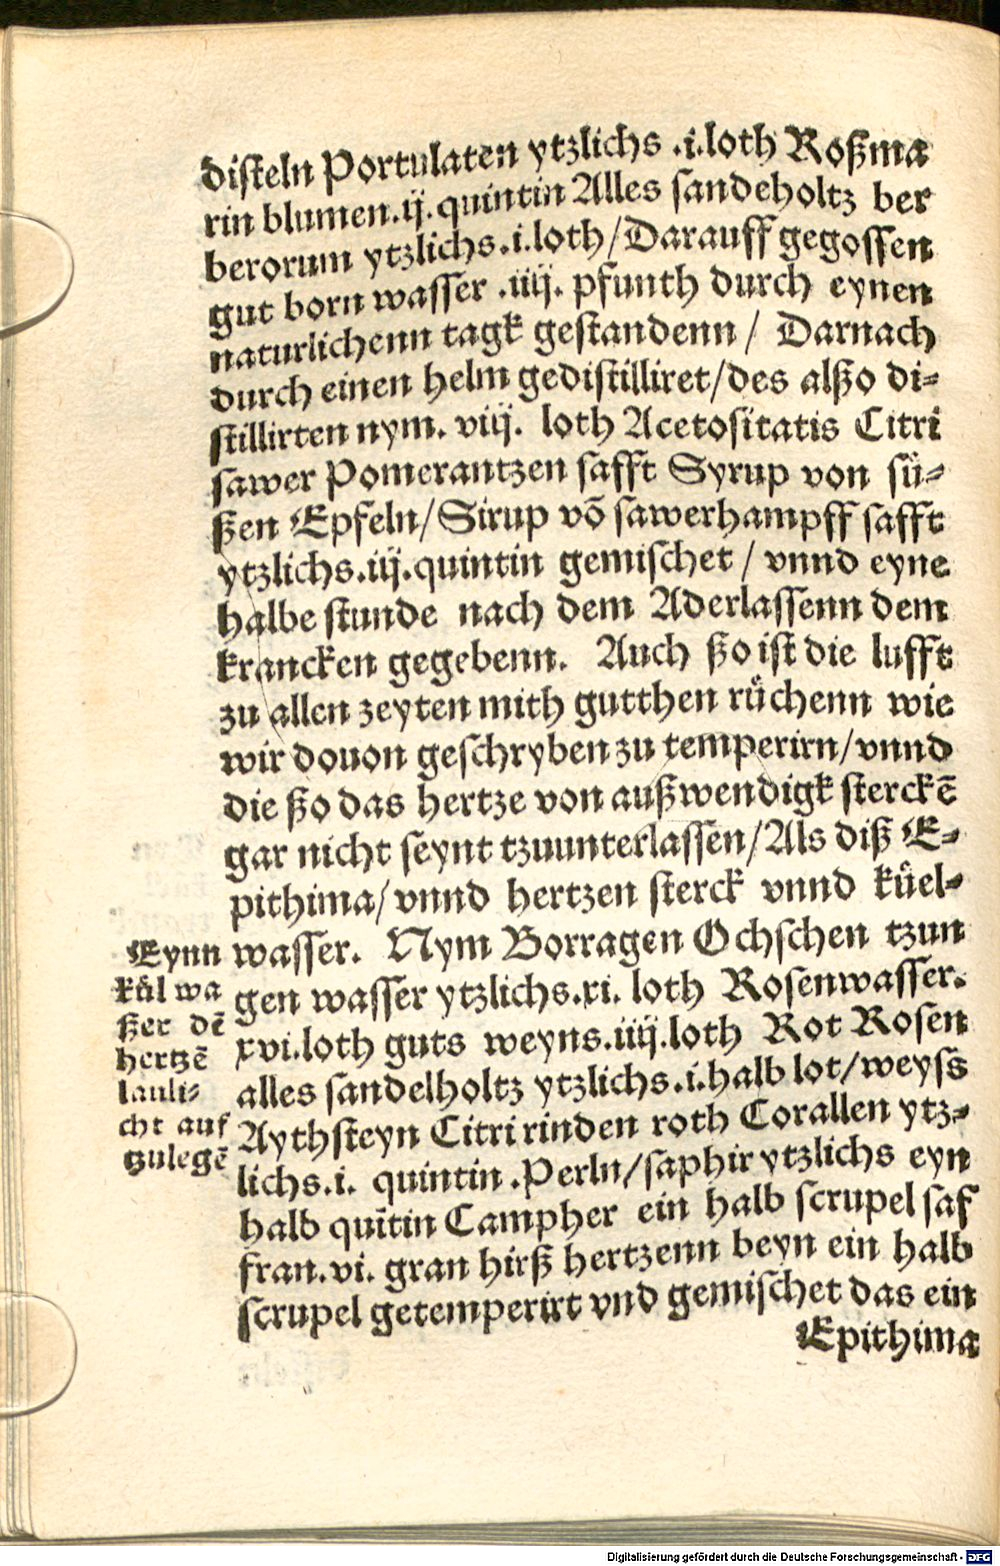 disteln Portulaten ytzlichs .i. loth Roßma
rin blumen .ij. quintin Alles sandeholtz ber
berorum ytzlichs .i. loth / Darauff gegossen
gut born wasser .iiij. pfunth durch eynen
naturlichenn tagk gestandenn / Darnach
durch einen helm gedistilliret / des alßo di-
stillirten nym. viij. loth Acetositatis Citri
sawer Pomerantzen safft Syrup von sü-
ßen Epfeln / Sirup võ sawerhampff safft
ytzlichs .iij. quintin gemischet / vnnd eyne
halbe stunde nach dem Aderlassenn dem
krancken gegebenn. Auch ßo ist die lufft
zu allen zeyten mith gutthen rüchenn wie
wir douon geschryben zu temperirn / vnnd
die ßo das hertze von außwendigk sterckẽ
gar nicht seynt tzuunterlassen / Als diß E-
pithima / vnnd hertzen sterck vnnd küel-
wasser. Nym Borragen Ochschen tzun
gen wasser ytzlichs .xi. loth Rosenwasser.
xvi. loth guts weyns .iiij. loth Rot Rosen
alles sandelholtz ytzlichs .i. halb lot / weyss
Aythsteyn Citri rinden roth Corallen ytz-
lichs .i. quintin . Perln / saphir ytzlichs eyn
halb quĩtin Campher ein halb scrupel saf
fran .vi. gran hirß hertzenn beyn ein halb
scrupel getemperirt vnd gemischet das ein
Epithima
Eynn
kůl wa
ßer dẽ
hertzẽ
lauli-
cht auf
tzulegẽ
Digitalisierung gefördert durch die Deutsche Forschungsgemeinschaft - DFG